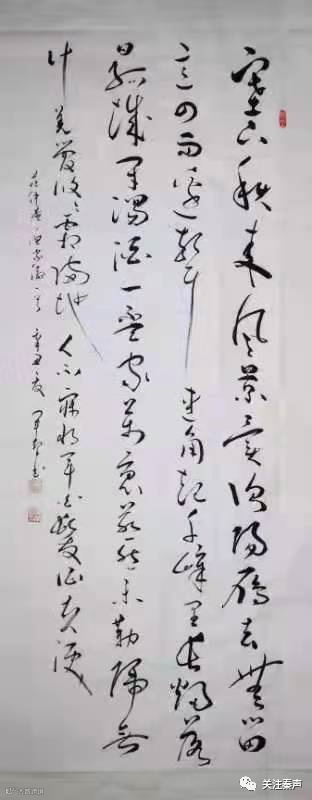 塞下秋来风景异衡阳雁去無留
意四面边声连角起千嶂里长烟落
日孤城闭浊酒一盃家万里燕然未勒归无
计羌管悠悠霜满地人不寐将军白发征夫泪
范仲淹词渔家傲一首 辛丑夏
关注秦声